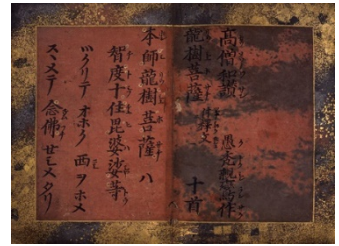 高僧和讃 愚禿親鸞作
龍樹菩薩 付釋文 十首
本師龍樹菩薩ハ
智度十住毘婆娑等
ツクリテオホク西ヲホメ
スヽメテ念佛セシメタリ